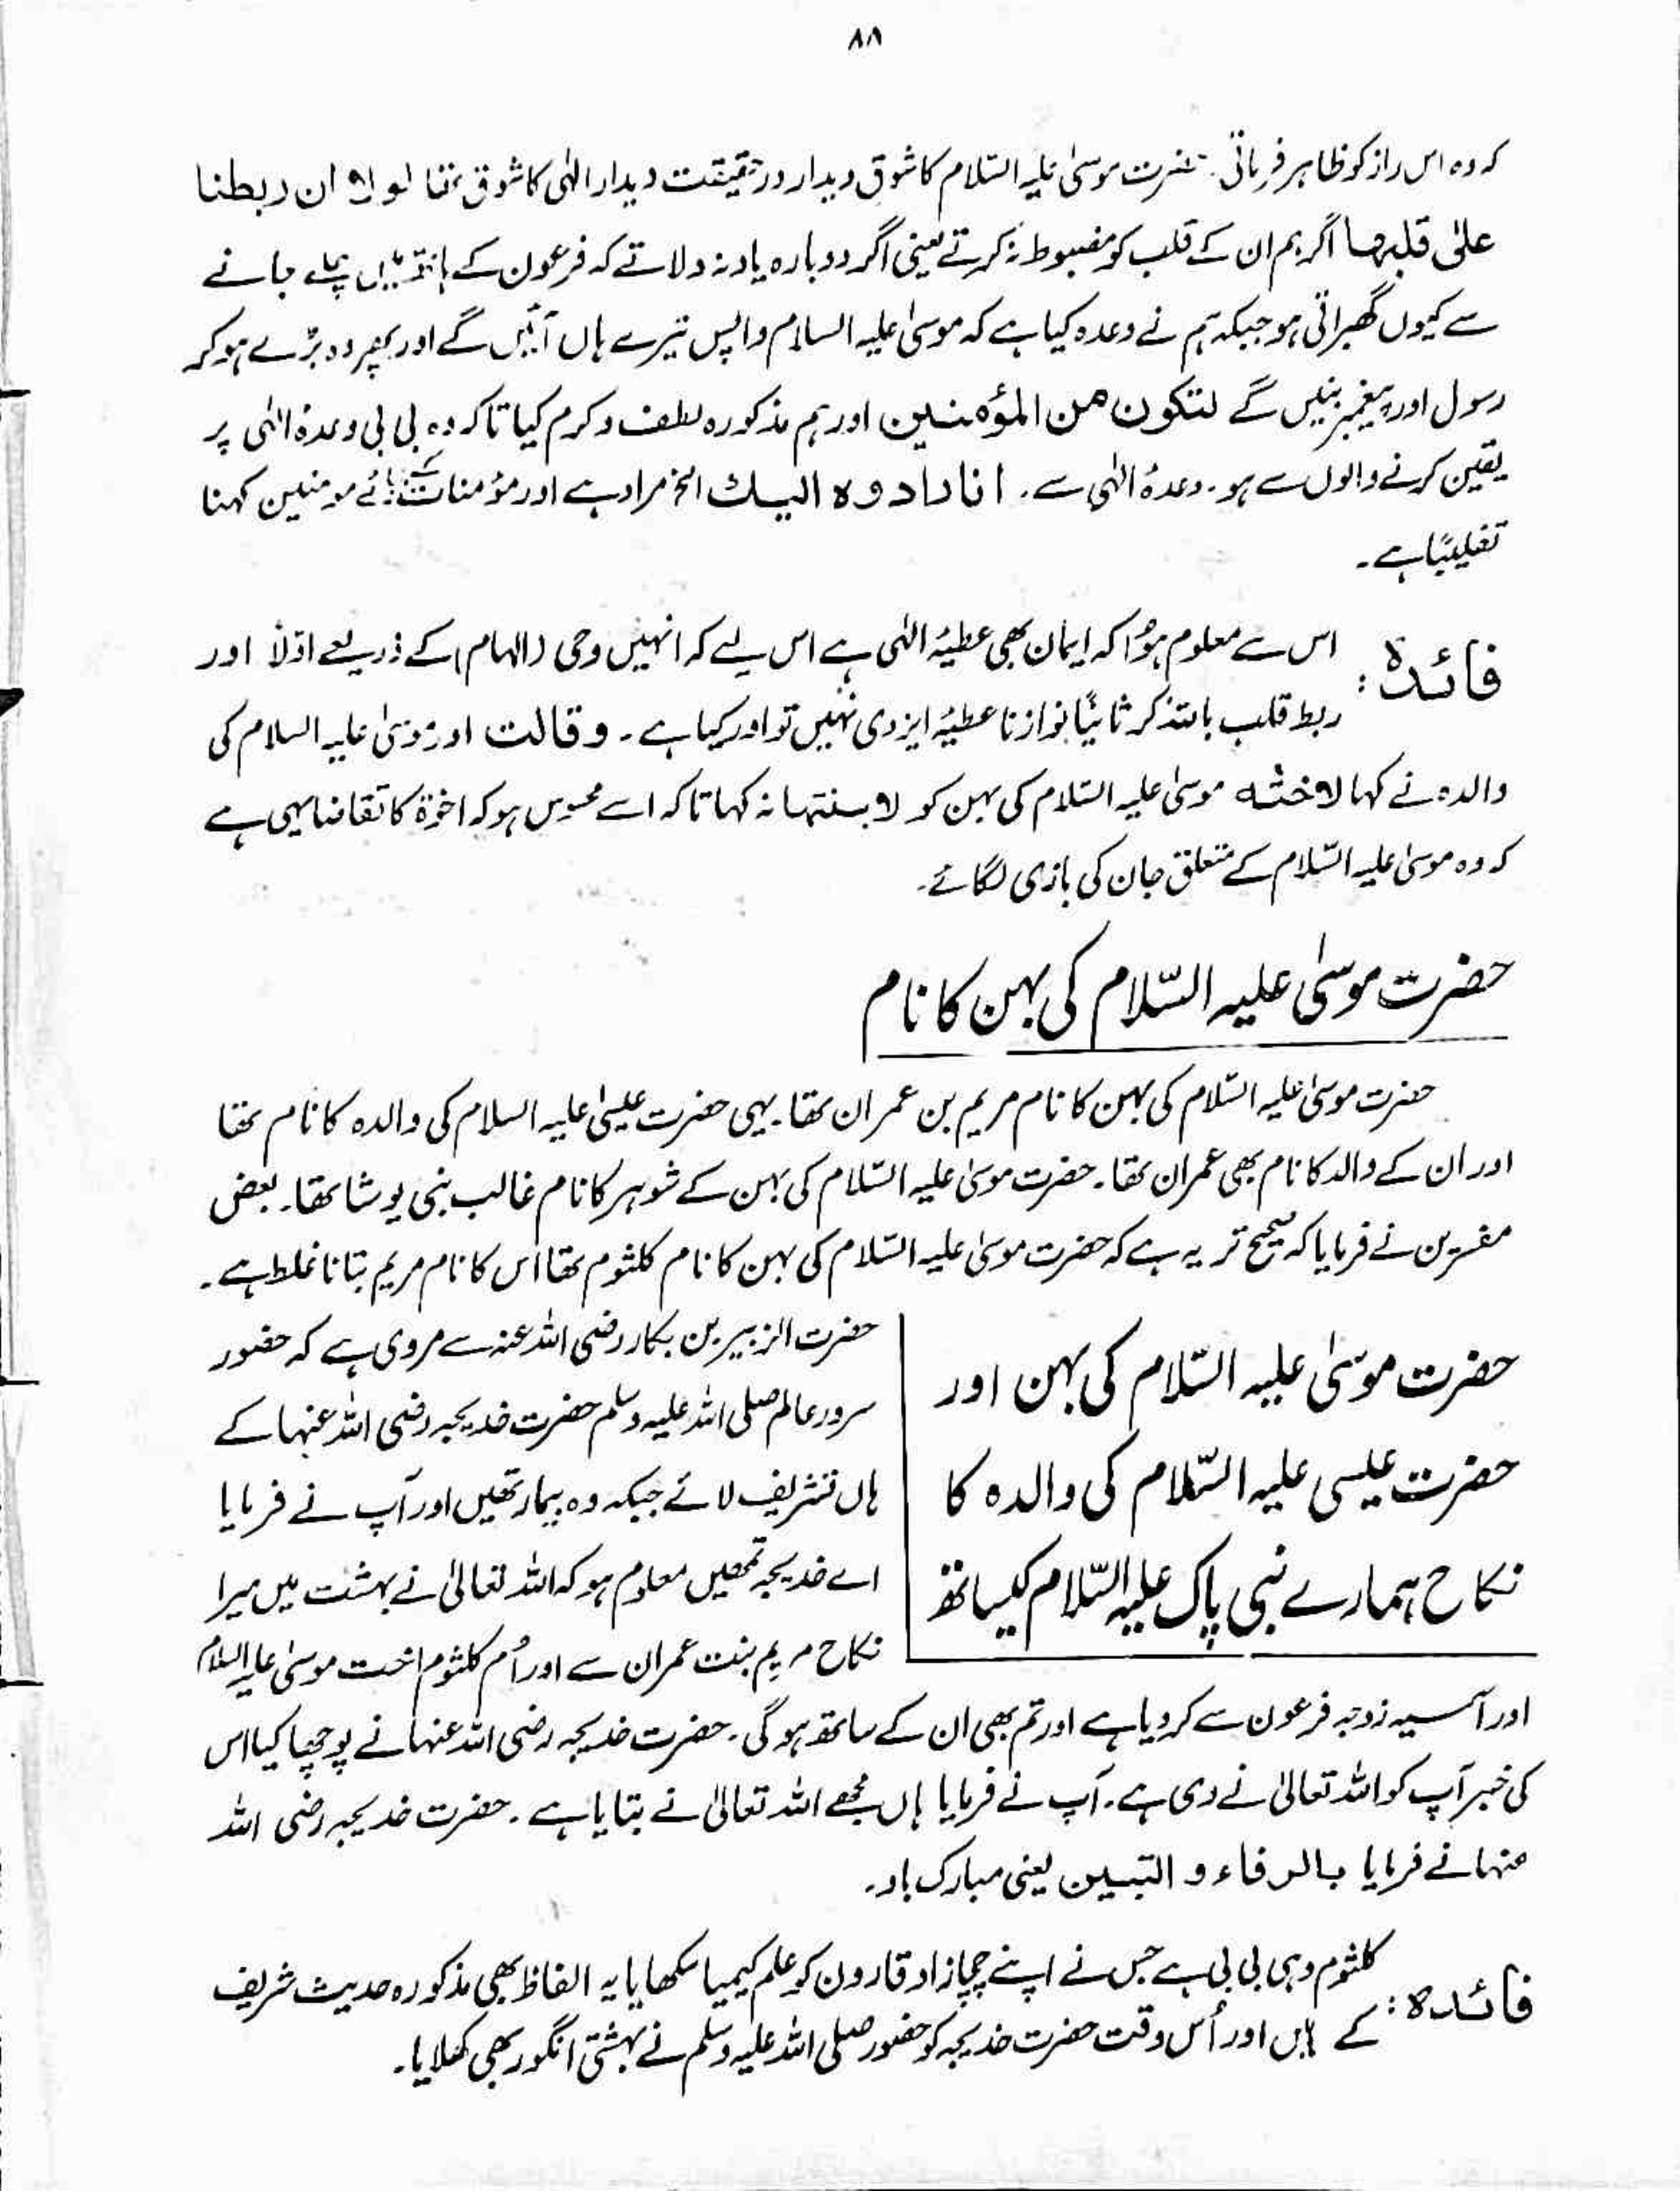 ۸۸
کہ وہ اس راز کو ظاہر فرماتی. حضرت موسیٰ علیہ السّلام کا شوق دیدار درحقیقت دیدار الٰہی کا شوق تھا لولا ان ربطنا
علیٰ قلبہا اگر ہم ان کے قلب کو مضبوط نہ کرتے یعنی اگر دوبارہ یاد نہ دلاتے کہ فرعون کے ہاتھ میں چلے جانے
سے کیوں گھبراتی ہو جبکہ ہم نے وعدہ کیا ہے کہ موسیٰ علیہ السلام واپس تیرے ہاں آئیں گے اور پھر وہ بڑے ہو کر
رسول اور پیغمبر بنیں گے لتکون من المؤمنین اور ہم مذکورہ لطف و کرم کیا تاکہ وہ بی بی وعدۂ الٰہی پر
یقین کرنے والوں سے ہو۔ وعدۂ الٰہی سے۔ انا رادوہ الیک الخ مراد ہے اور مؤمنات کے بجائے مومنین کہنا
تغلیبًا ہے۔
فائدہ: اس سے معلوم ہؤا کہ ایمان بھی عطیۂ الٰہی ہے اس لیے کہ انہیں وحی (الہام) کے ذریعے اوّلاً اور
ربط قلب بالتذکر ثانیًا نوازنا عطیۂ ایزدی نہیں تو اور کیا ہے۔ وقالت اور موسیٰ علیہ السلام کی
والدہ نے کہا لاختہ موسیٰ علیہ السّلام کی بہن کو لابنتہا نہ کہا تاکہ اسے محسوس ہو کہ اخوۃ کا تقاضا یہی ہے
کہ وہ موسیٰ علیہ السّلام کے متعلق جان کی بازی لگائے۔
حضرت موسیٰ علیہ السّلام کی بہن کا نام
حضرت موسیٰ علیہ السّلام کی بہن کا نام مریم بن عمران تھا۔ یہی حضرت عیسیٰ علیہ السلام کی والدہ کا نام تھا
اور ان کے والد کا نام بھی عمران تھا۔ حضرت موسیٰ علیہ السّلام کی بہن کے شوہر کا نام غالب بنجی یوشا تھا۔ بعض
مفسرین نے فرمایا کہ صحیح تر یہ ہے کہ حضرت موسیٰ علیہ السّلام کی بہن کا نام کلثوم تھا اُس کا نام مریم بتانا غلط ہے۔
حضرت موسیٰ علیہ السّلام کی بہن اور
حضرت عیسی علیہ السّلام کی والدہ کا
نکاح ہمارے نبی پاک علیہ السّلام کیساتھ
حضرت الزبیر بن بکار رضی اللہ عنہ سے مروی ہے کہ حضور
سرور عالم صلی اللہ علیہ وسلم حضرت خدیجہ رضی اللہ عنہا کے
ہاں تشریف لائے جبکہ وہ بیمار تھیں اور آپ نے فرمایا
اے خدیجہ تمھیں معلوم ہو کہ اللہ تعالیٰ نے بہشت میں میرا
نکاح مریم بنت عمران سے اور اُم کلثوم اخت موسیٰ علیہ السلام
اور آسیہ زوجہ فرعون سے کر دیا ہے اور تم بھی ان کے ساتھ ہو گی۔ حضرت خدیجہ رضی اللہ عنہا نے پوچھا کیا اس
کی خبر آپ کو اللہ تعالیٰ نے دی ہے۔ آپ نے فرمایا ہاں مجھے اللہ تعالیٰ نے بتایا ہے۔ حضرت خدیجہ رضی اللہ
عنہا نے فرمایا بالرفاء و التبیین یعنی مبارک باد۔
فائدہ: کلثوم وہی بی بی ہے جس نے اپنے چچازاد قارون کو علم کیمیا سکھایا یہ الفاظ بھی مذکورہ حدیث شریف
کے ہیں اور اُس وقت حضرت خدیجہ کو حضور صلی اللہ علیہ وسلم نے بہشتی انگور بھی کھلایا۔